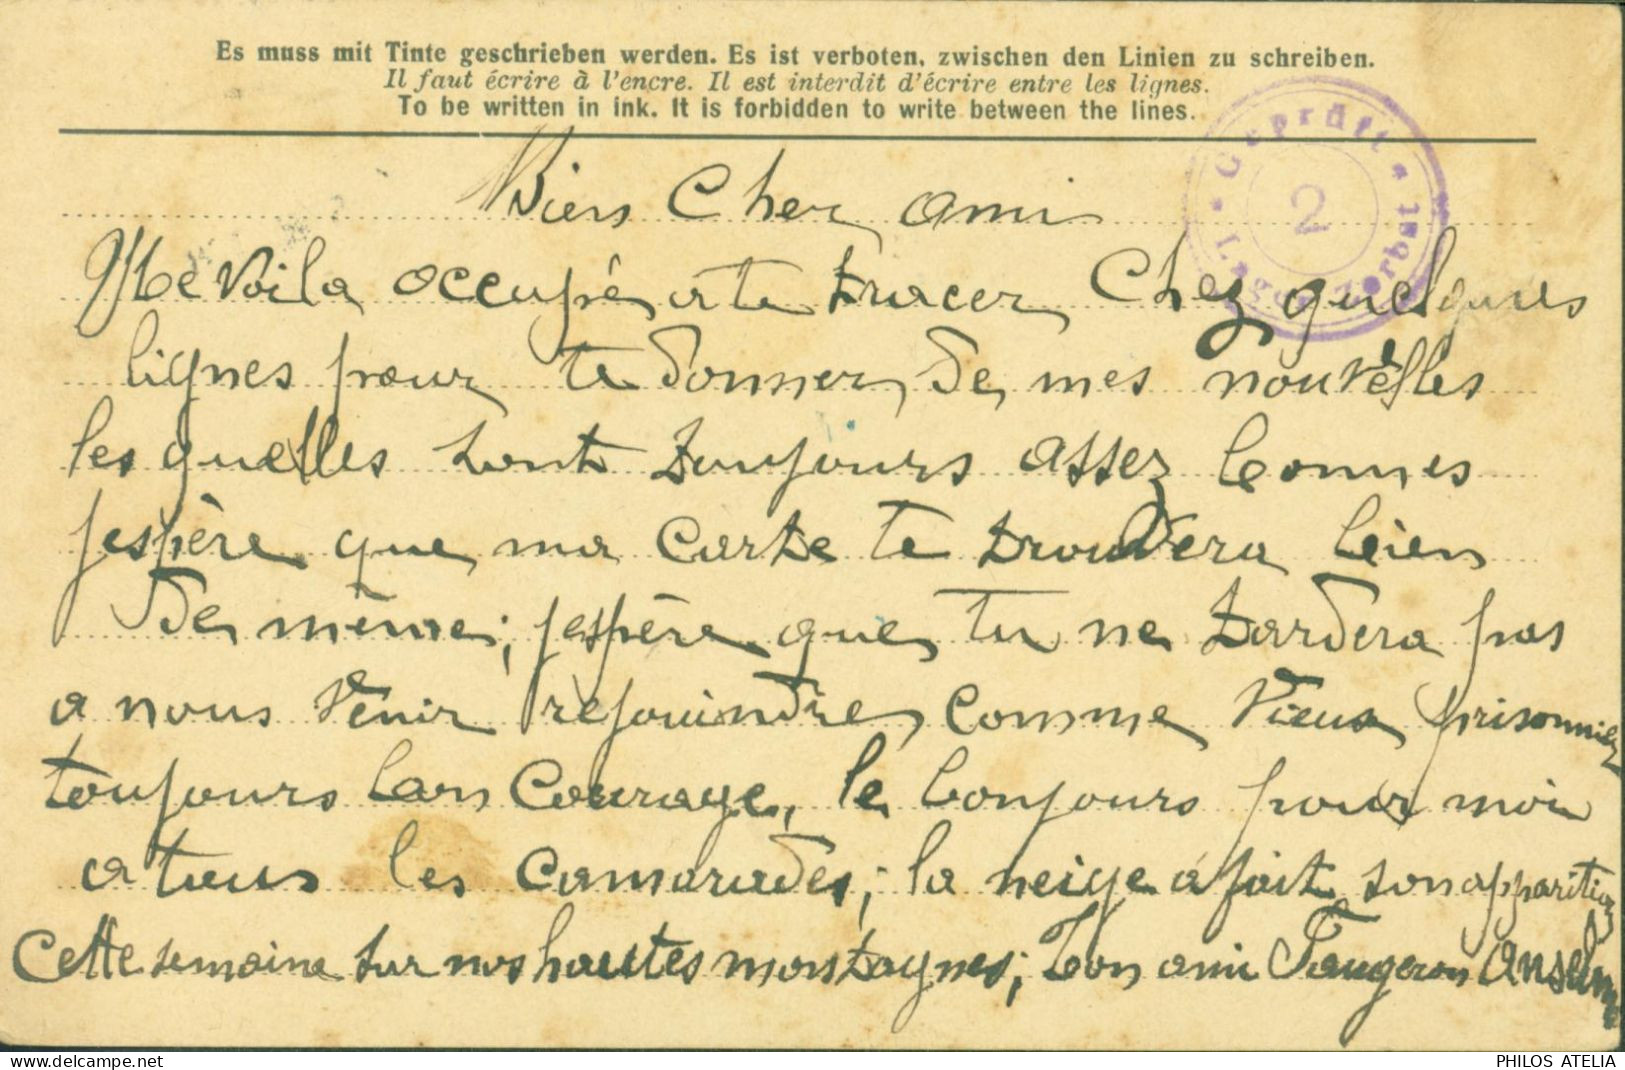 Es muss mit Tinte geschrieben werden. Es ist verboten, zwischen den Linien zu schreiben.
Il faut écrire à l'encre. Il est interdit d'écrire entre les lignes.
To be written in ink. It is forbidden to write between the lines.
Geprüft
2
Lager Zerbst
Bien Cher ami
Me voila occupé a te tracer Chez quelques
lignes pour te donner de mes nouvelles
les quelles sont toujours assez bonnes
jespère que ma carte te trouvera bien
de même; jespère que tu ne tardera pas
a nous venir rejoindre comme vieux prisonnier
toujours bon Courage, le bonjours pour moi
a tous les camarades; la neige a fait son apparition
Cette semaine sur nos hautes montagnes; Ton ami Faugeron Anselme
delcampe.net
PHILOS ATELIA